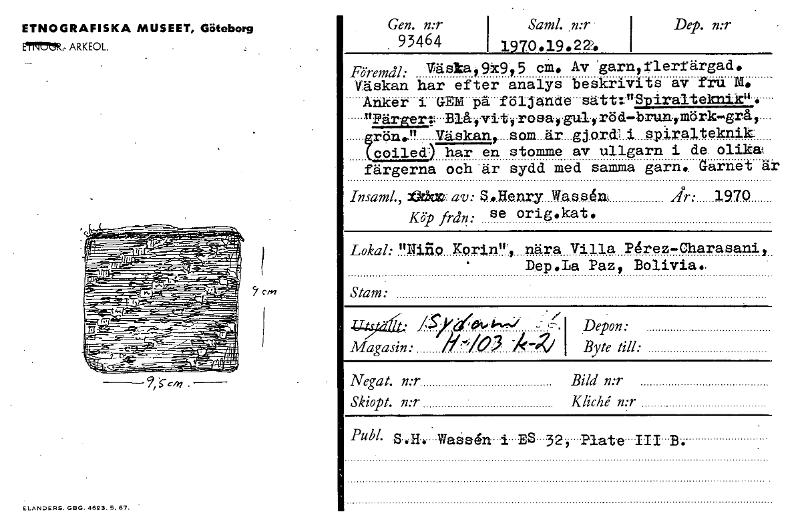 ETNOGRAFISKA MUSEET, Göteborg
ETNOGR.- ARKEOL.
9 cm
9,5 cm.
ELANDERS. GBG. 4623. 5. 67.
Gen. n:r Saml. n:r Dep. n:r
93464 1970.19.22.
Föremål: Väska,9x9,5 cm. Av garn,flerfärgad.
Väskan har efter analys beskrivits av fru M.
Anker i GEM på följande sätt:"Spiralteknik".
"Färger: Blå,vit,rosa,gul,röd-brun,mörk-grå,
grön." Väskan, som är gjord i spiralteknik
(coiled) har en stomme av ullgarn i de olika
färgerna och är sydd med samma garn. Garnet är
Insaml., av: S.Henry Wassén År: 1970
Köp från: se orig.kat.
Lokal: "Niño Korin", nära Villa Pérez-Charasani,
Dep.La Paz, Bolivia.
Stam:
Utställt: Sydam Depon:
Magasin: H-103 k-2 Byte till:
Negat. n:r Bild n:r
Skiopt. n:r Kliché n:r
Publ. S.H. Wassén i ES 32, Plate III B.